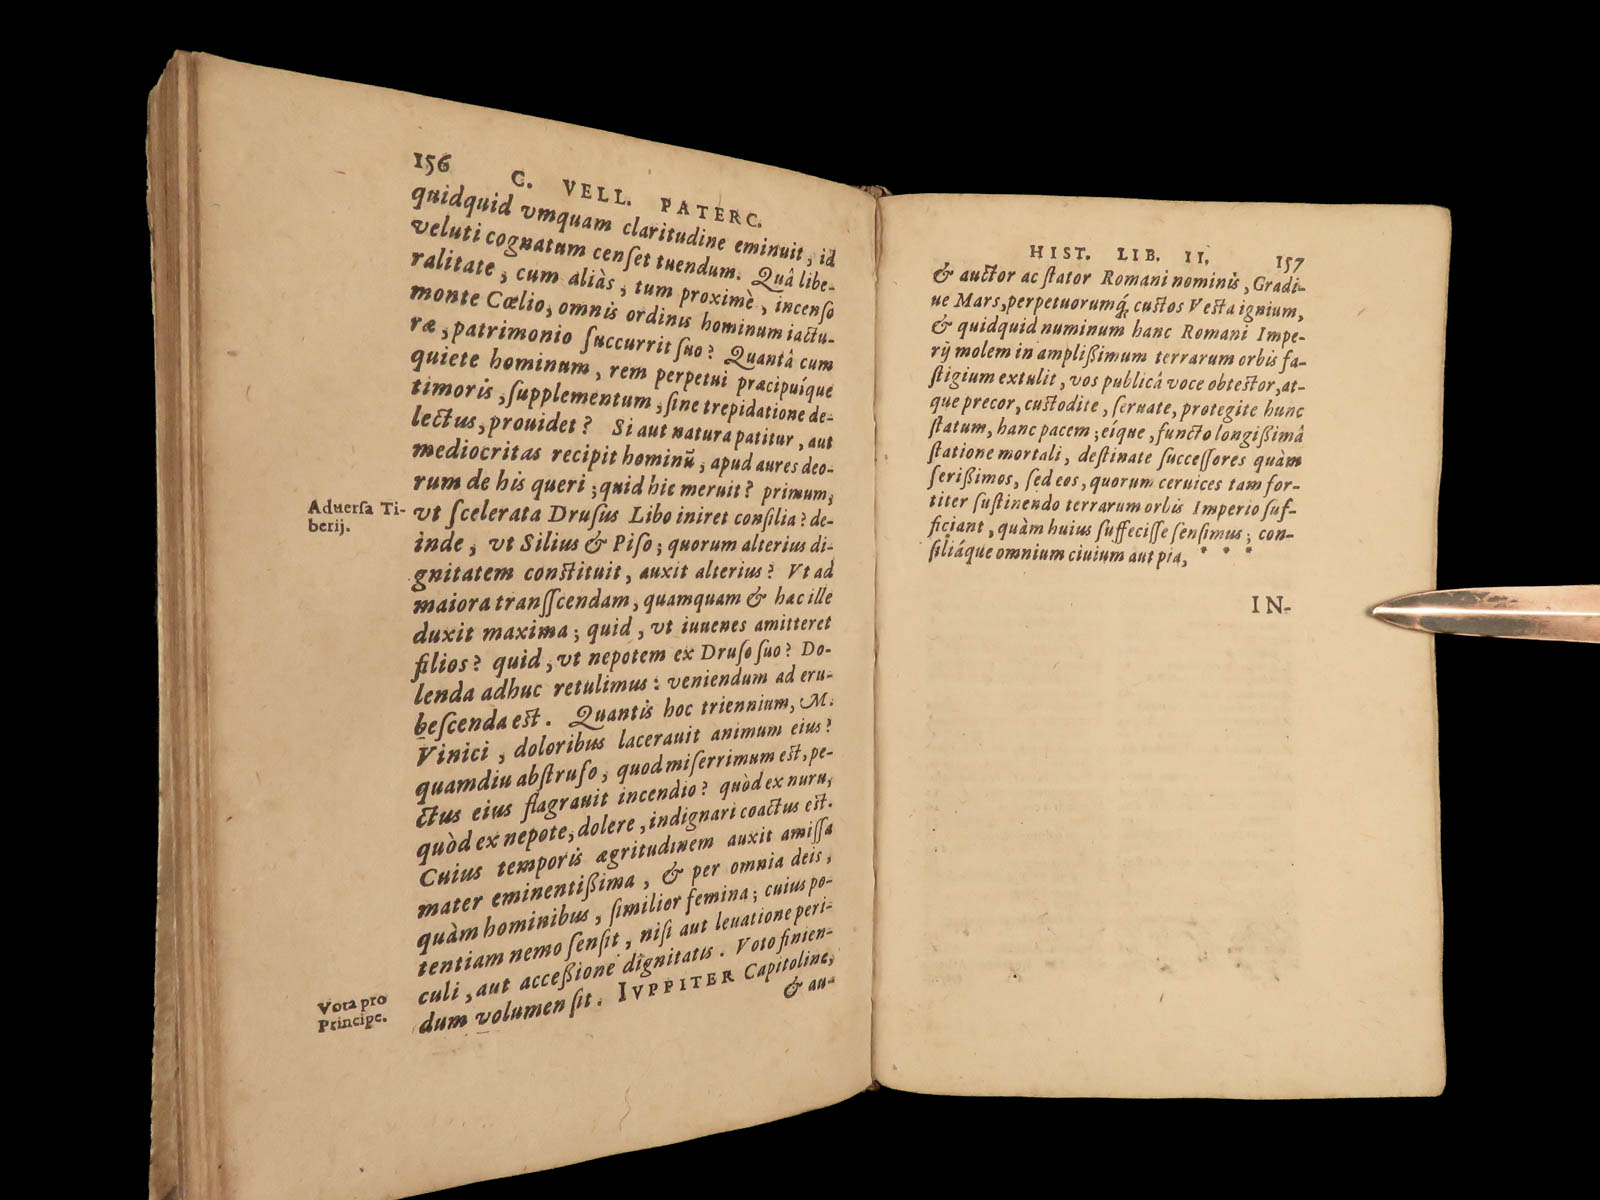 156
C. VELL. PATERC.
quidquid vmquam claritudine eminuit, id
veluti cognatum censet tuendum. Quâ libe-
ralitate, cum aliàs, tum proximè, incenso
monte Cœlio, omnis ordinis hominum iactu-
ræ, patrimonio succurrit suo? Quantâ cum
quiete hominum, rem perpetui præcipuíque
timoris, supplementum, sine trepidatione de-
lectus, prouidet? Si aut natura patitur, aut
mediocritas recipit hominū, apud aures deo-
rum de his queri; quid hic meruit? primum,
Aduersa Ti-
berij.
vt scelerata Drusus Libo iniret consilia? de-
inde, vt Silius & Piso; quorum alterius di-
gnitatem constituit, auxit alterius? Vt ad
maiora transscendam, quamquam & hac ille
duxit maxima; quid, vt iuuenes amitteret
filios? quid, vt nepotem ex Druso suo? Do-
lenda adhuc retulimus: veniendum ad eru-
bescenda est. Quantis hoc triennium, M.
Vinici, doloribus lacerauit animum eius?
quamdiu abstruso, quod miserrimum est, pe-
ctus eius flagrauit incendio? quòd ex nuru,
quòd ex nepote, dolere, indignari coactus est.
Cuius temporis ægritudinem auxit amissa
mater eminentißima, & per omnia deis,
quàm hominibus, similior femina; cuius po-
tentiam nemo sensit, nisi aut leuatione peri-
culi, aut acceßione dignitatis. Voto finien-
Vota pro
Principe.
dum volumen sit. IVPPITER Capitoline,
& au-
HIST. LIB. II. 157
& auctor ac stator Romani nominis, Gradi-
ue Mars, perpetuorumq́; custos Vesta ignium,
& quidquid numinum hanc Romani Impe-
rij molem in amplißimum terrarum orbis fa-
stigium extulit, vos publicâ voce obtestor, at-
que precor, custodite, seruate, protegite hunc
statum, hanc pacem; eíque, functo longißimâ
statione mortali, destinate successores quàm
serißimos, sed eos, quorum ceruices tam for-
titer sustinendo terrarum orbis Imperio suf-
ficiant, quàm huius suffecisse sensimus; con-
siliáque omnium ciuium aut pia, * * *
IN-